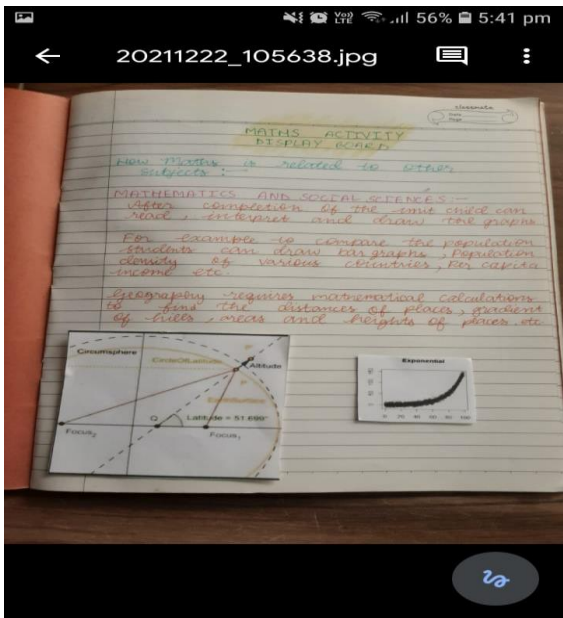 Vo))
LTE
56%
5:41 pm
20211222_105638.jpg
classmate
Date
Page
MATHS ACTIVITY
DISPLAY BOARD
How Maths is related to other
subjects :-
MATHEMATICS AND SOCIAL SCIENCES :-
After completion of the unit child can
read, interpret and draw the graphs
For example to compare the population
students can draw bar graphs, Population
density of various countries, Per capita
income etc.
Geography requires mathematical calculations
to find the distances of places, gradient
of hills, areas and heights of places. etc
Circumsphere
CircleOfLatitude
P'
Altitude
P
EarthSurface
Q
Latitude = 51.699°
Focus₂
Focus₁
Exponential
0 20 40 60 80 100